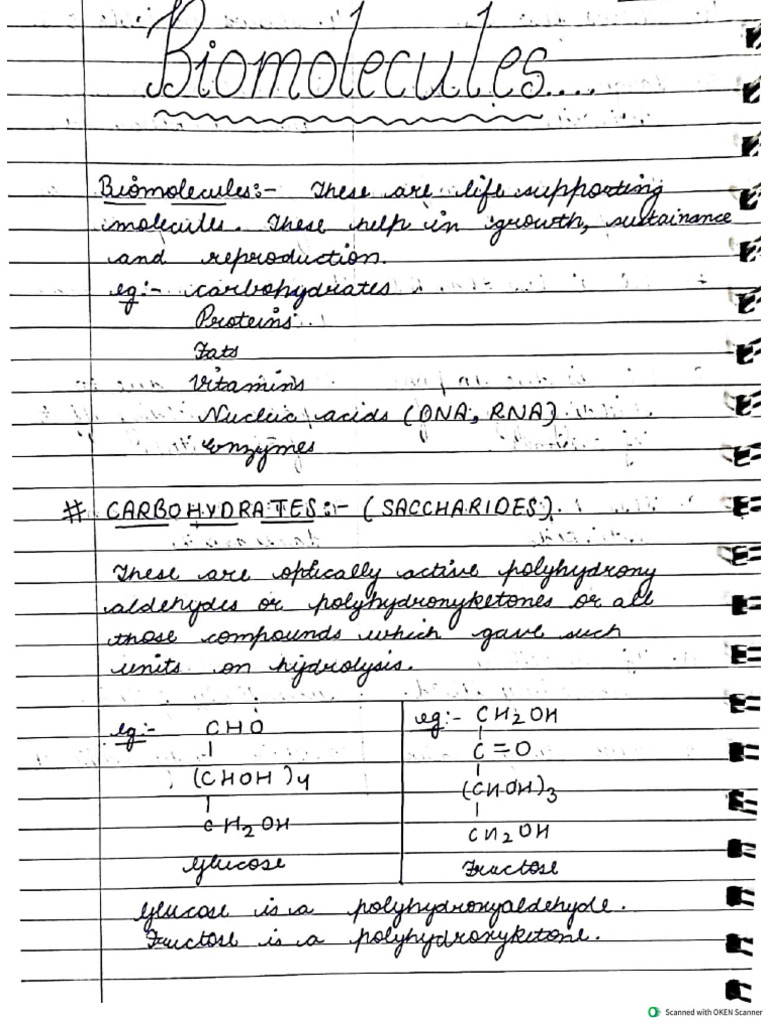 Biomolecules....
Biomolecules:- These are life supporting
molecules. These help in growth, sustainance
and reproduction.
eg:- carbohydrates
Proteins
Fats
Vitamins
Nucleic acids (DNA, RNA)
enzymes
# CARBOHYDRATES:- (SACCHARIDES).
These are optically active polyhydroxy
aldehydes or polyhydroxyketones or all
those compounds which gave such
units on hydrolysis.
eg:- CHO
(CHOH)4
CH2OH
Glucose
eg:- CH2OH
C=O
(CHOH)3
CH2OH
Fructose
Glucose is a polyhydroxyaldehyde.
Fructose is a polyhydroxyketone.
Scanned with OKEN Scanner